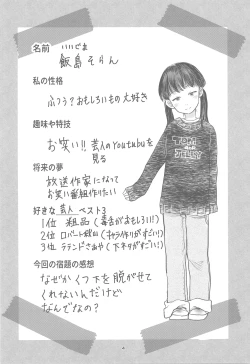 名前
いいじま
飯島 そらん
私の性格
ふつう?おもしろいもの大好き
趣味や特技
お笑い!! 芸人のYoutubeを
見る
将来の夢
放送作家になって
お笑い番組作りたい
好きな芸人ベスト3
1位 粗品(毒舌がおもしろい!)
2位 ロバート秋山(キャラ作りがすごい!)
3位 ラランドさあや(下ネタがすごい!)
今回の宿題の感想
なぜかくつ下を脱がせて
くれないんだけど
なんでなの?
TOM
AND
JERRY